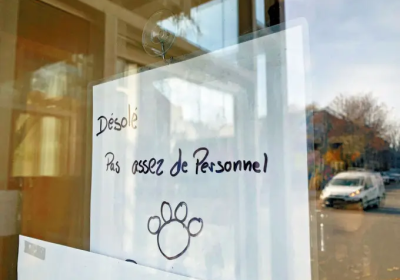 Désolé
Pas assez de Personnel